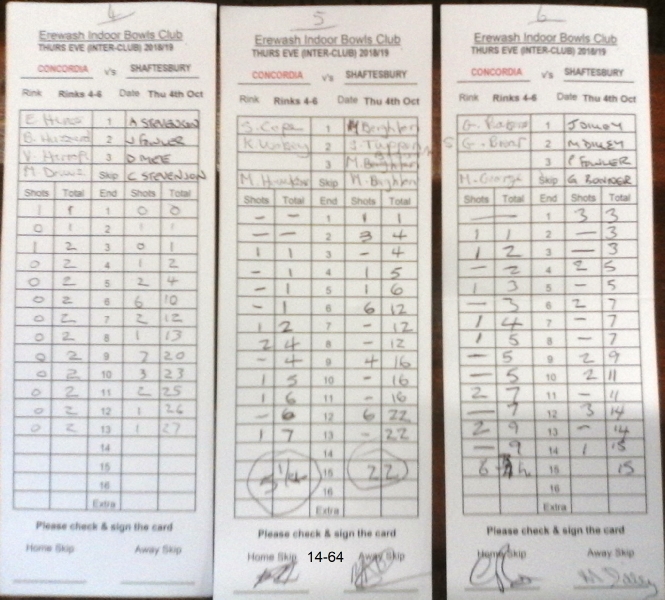 4
Erewash Indoor Bowls Club
THURS EVE (INTER-CLUB) 2018/19
CONCORDIA v's SHAFTESBURY
Rink Rinks 4-6 Date Thu 4th Oct
1 A STEVENSON
2 J FOWLER
3
Skip C STEVENSON
Shots Total End Shots Total
1 1 1 0 0
0 1 2 1 1
1 2 3 0 1
0 2 4 1 2
0 2 5 2 4
0 2 6 6 10
0 2 7 2 12
0 2 8 1 13
0 2 9 7 20
0 2 10 3 23
0 2 11 2 25
0 2 12 1 26
0 2 13 1 27
14
15
16
Extra
Please check & sign the card
Home Skip Away Skip
5
Erewash Indoor Bowls Club
THURS EVE (INTER-CLUB) 2018/19
CONCORDIA v's SHAFTESBURY
Rink Rinks 4-6 Date Thu 4th Oct
S. Cope 1 Brighten
2
3 M. Brighten
Skip Brighten
Shots Total End Shots Total
- - 1 1 1
- - 2 3 4
1 1 3 - 4
- 1 4 1 5
- 1 5 1 6
- 1 6 6 12
1 2 7 - 12
2 4 8 - 12
- 4 9 4 16
1 5 10 - 16
1 6 11 - 16
- 6 12 6 22
1 7 13 - 22
14
15 22
16
Extra
Please check & sign the card
Home Skip 14-64 Away Skip
6
Erewash Indoor Bowls Club
THURS EVE (INTER-CLUB) 2018/19
CONCORDIA v's SHAFTESBURY
Rink Rinks 4-6 Date Thu 4th Oct
1 J DILLEY
2 M DILLEY
3 P FOWLER
M. George Skip G BONSER
Shots Total End Shots Total
— 1 3 3
1 1 2 — 3
1 2 3 — 3
- 2 4 2 5
1 3 5 - 5
- 3 6 2 7
1 4 7 - 7
1 5 8 - 7
- 5 9 2 9
- 5 10 2 11
2 7 11 - 11
- 7 12 3 14
2 9 13 - 14
- 9 14 1 15
6 15 15
16
Extra
Please check & sign the card
Home Skip Away Skip
M. Dilley